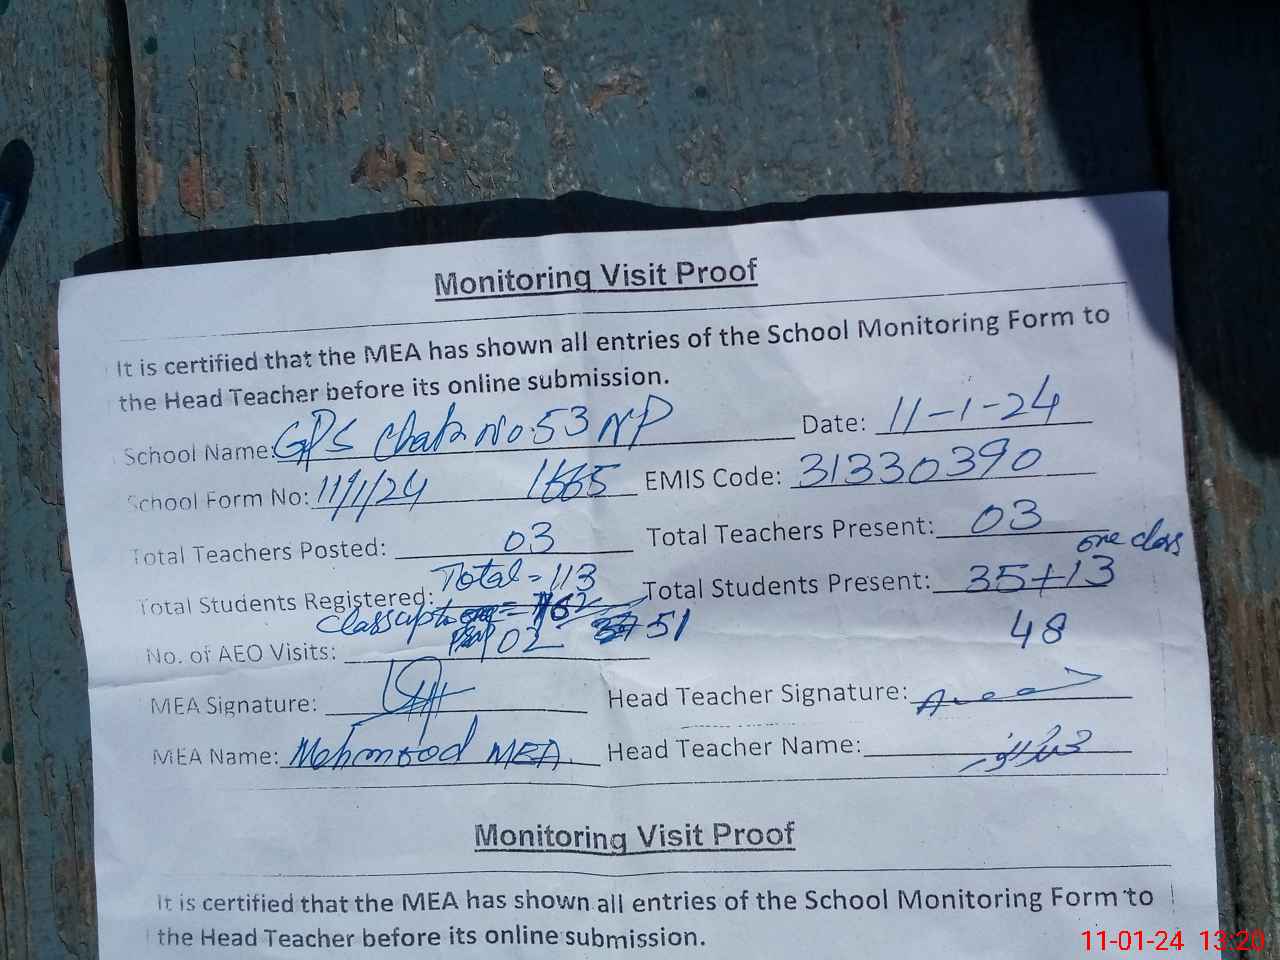 Monitoring Visit Proof
It is certified that the MEA has shown all entries of the School Monitoring Form to
the Head Teacher before its online submission.
School Name: GPS Chak No. 53 NP Date: 11-1-24
School Form No: 11/1/24 1665 EMIS Code: 31330390
Total Teachers Posted: 03 Total Teachers Present: 03
one class
Total Students Registered: Total = 113 Total Students Present: 35+13
Class upto = 62 51 48
No. of AEO Visits: 02
MEA Signature: Head Teacher Signature:
MEA Name: Mehmood MEA. Head Teacher Name:
Monitoring Visit Proof
It is certified that the MEA has shown all entries of the School Monitoring Form to
the Head Teacher before its online submission.
11-01-24 13:20